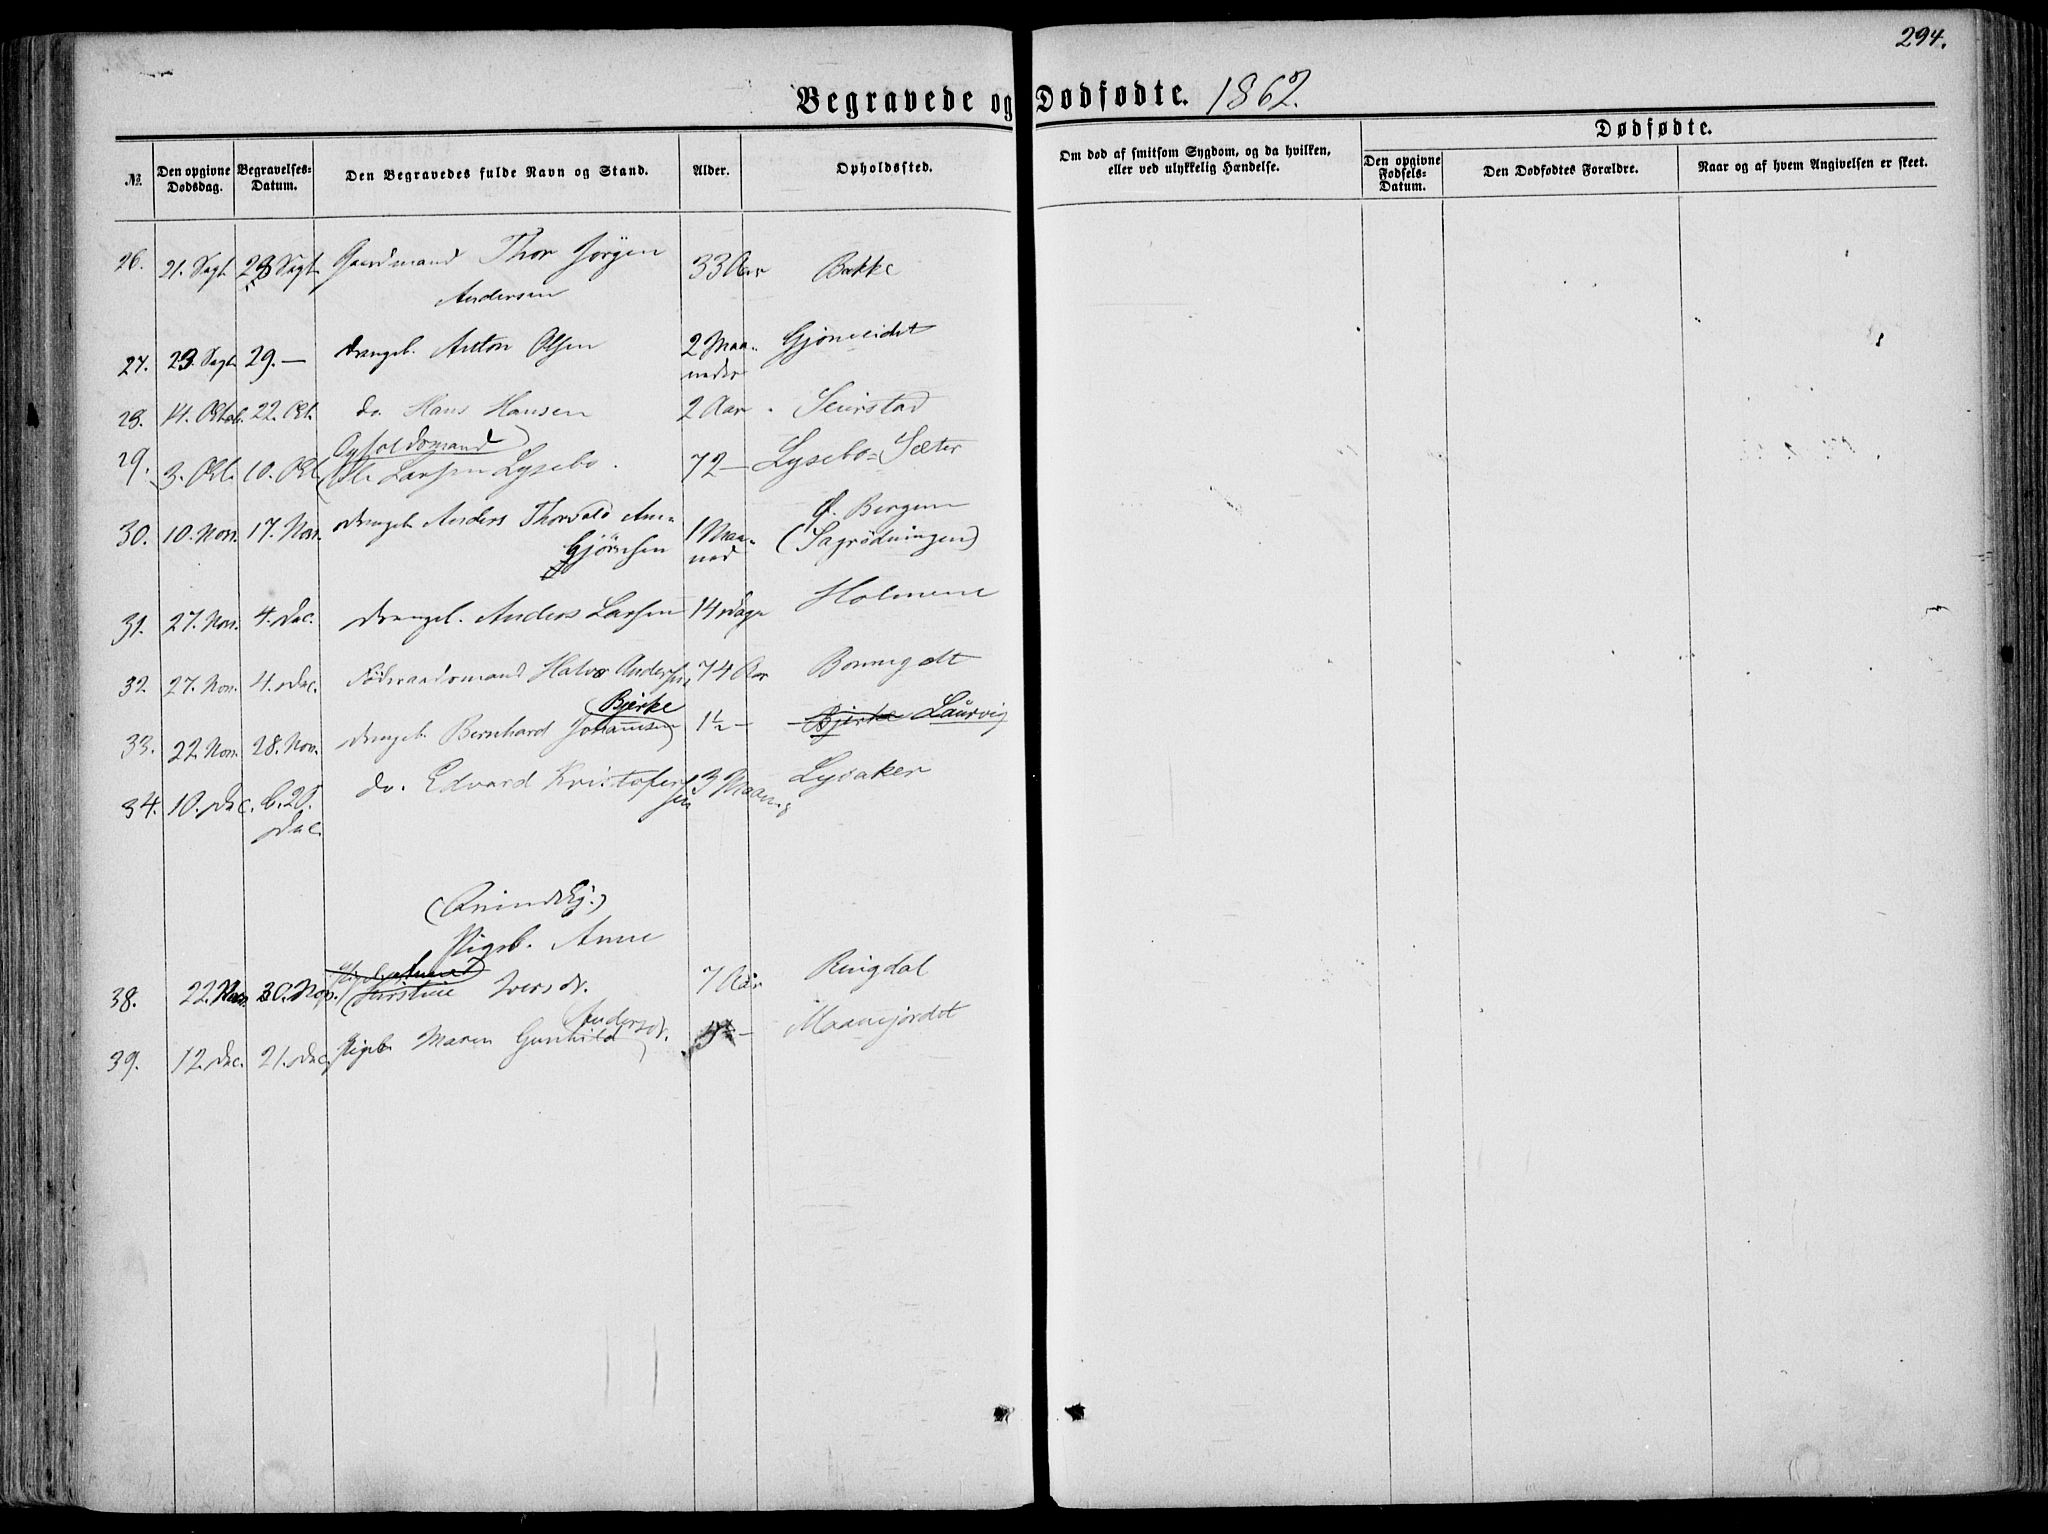 294.
Begravede og Dødfødte. 1862.
№ Den opgivne Dødsdag. Begravelses-Datum. Den Begravedes fulde Navn og Stand. Alder. Opholdssted. Om død af smitsom Sygdom, og da hvilken, eller ved ulykkelig Hændelse. Dødfødte.
Den opgivne Fødsels-Datum. Den Dødfødtes Forældre. Naar og af hvem Angivelsen er skeet.
26. 21. Sept. 28 Sept. Gaardmand Thor Jörgen 33 Aar Bakke
Andersen
27. 23. Sept. 29. — Drengeb. Anton Olsen 2 Maa- Gjöneidet
neder
28. 14. Octob. 22. Oct. do. Hans Hansen 2 Aar Seierstad
29. 3. Oct. 10. Oct. Ole Larsen Lysebo. 72 — Lysebo-Sæter
30. 10. Nov. 17. Nov. Drengeb. Anders Thorvald An- 1 Maa- Ø. Bergene
Gjörnsen ned (Sagrödningen)
31. 27. Nov. 4. Dec. Drengeb. Anders Larsen 14 Dage Holmene
32. 27. Nov. 4. Dec. Föderaadsmand Halvor Andersen 74 Aar
Bjerke
33. 22. Nov. 28. Nov. Drengeb. Bernhard Johannesen 1½ — Bjerke Laurvig
34. 10. Dec. b. 20. do. Edvard Kristofersen 3 Lysaker
Dec.
(Qvindekj.)
Pigeb. Anne
38. 22. Nov. 30. Nov. Iversdr. 7 Aar Ringdal
Andersdr.
39. 12. Dec. 21. Dec. Pigeb. Maren Gunhild Maanejordet